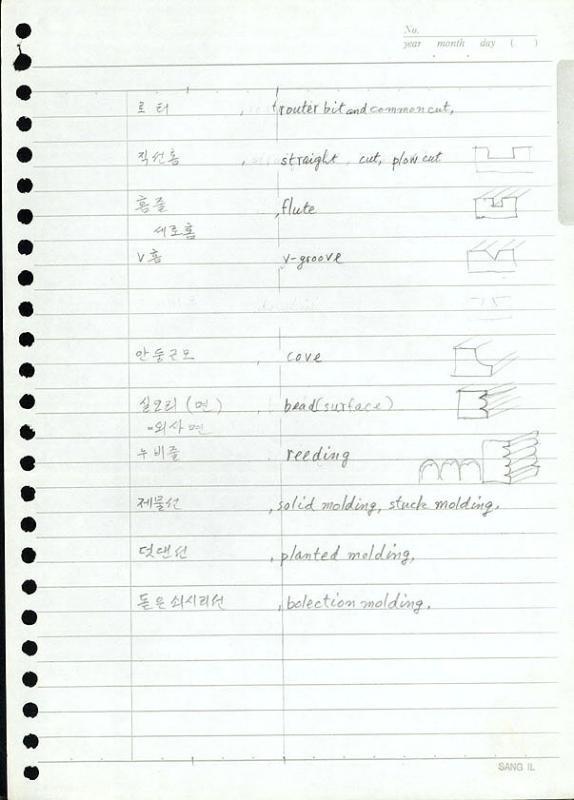 No.
year month day ( )
로터 , router bit and common cut,
직선홈 , straight cut, plow cut
홈줄 , flute
세로홈
V홈 v-groove
안둥근모 , cove
실오리(면) , bead(surface)
-외사면
누비줄 reeding
제물선 , solid molding, stuck molding,
덧댄선 , planted molding,
돋은쇠시리선 , bolection molding.
SANG IL